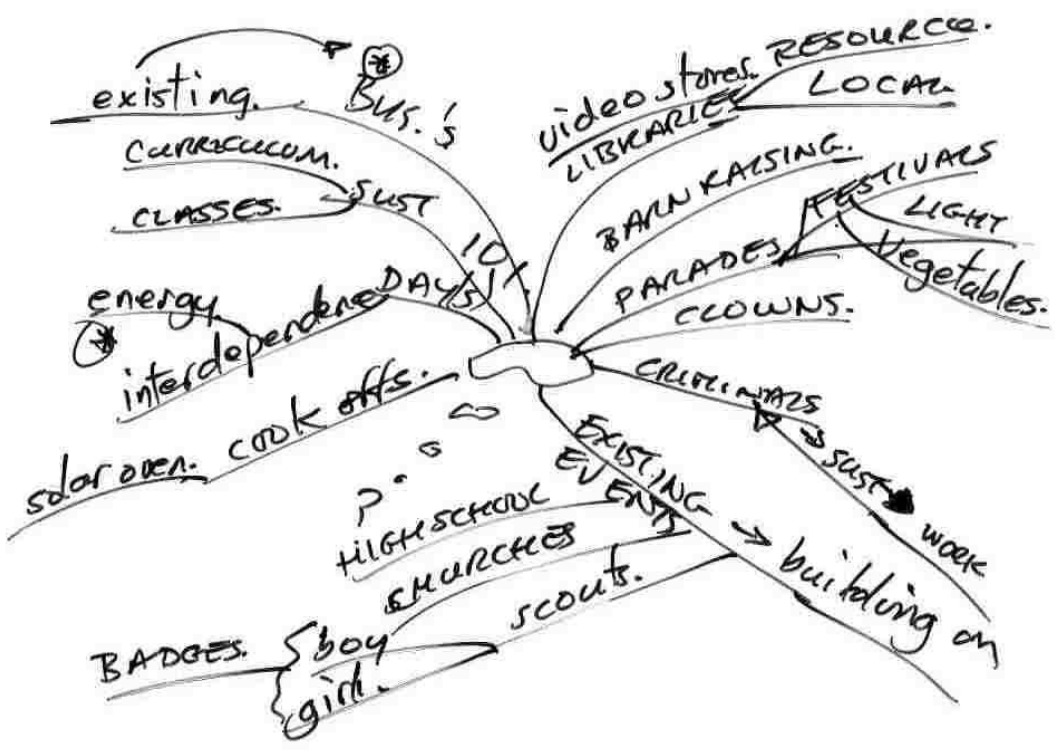 existing.
Bus.'s
10%
CURRICULUM.
CLASSES.
SUST
energy
interdependence
DAYS!
solar oven. cook offs.
video stores.
LIBRARIES
RESOURCE.
LOCAL
BARN RAISING.
PARADES
FESTIVALS
LIGHT
Vegetables.
CLOWNS.
CRIMINALS
→ SUST
WORK
EXISTING
EVENTS
→ building on
HIGH SCHOOL
CHURCHES
scouts.
boy
girl.
BADGES.
?